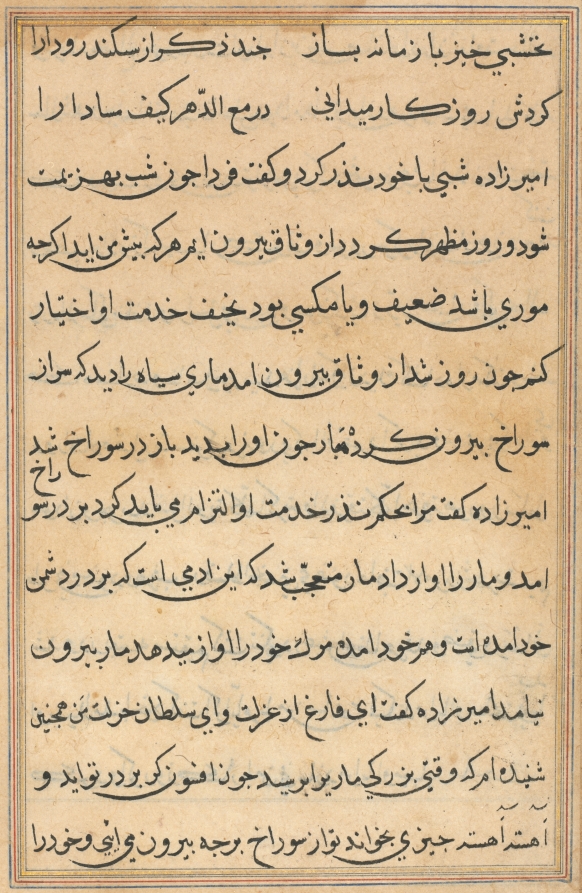 نخشبي خيز با زمانه بساز جند ذكر از سكندر و دارا
كردش روزكار ميداني در مع الدّهر كيف ما دارا
امير زاده شبي با خود نذر كرد و كفت فردا جون شب بهزيمت
شود و روز مظهر كردد از وثاق بيرون ايم هر كه بيش من ايد اكرجه
موري باشد ضعيف و يا مكسي بود نحيف خدمت او اختيار
كنم جون روز شد از وثاق بيرون امد ماري سياه را ديد كه سر از
سوراخ بيرون كرده مار جون او را بديد باز در سوراخ شد
امير زاده كفت مرا بحكم نذر خدمت او التزام مي بايد كرد بر در سوراخ
امد و مار را اواز داد مار متعجّب شد كه اين ادمي است كه بر در دشمن
خود امده است و هم خود امده مرك خود را اواز ميدهد مار بيرون
نيامد امير زاده كفت اي فارغ از عزلت و اي سلطان عزلت من همجنين
شنيده ام كه وقتي بزركي مار برا برسيد جون افسون كر بر در تو ايد و
آهسته آهسته جيزي بخواند تو از سوراخ برجه بيرون مي ائي و خود را